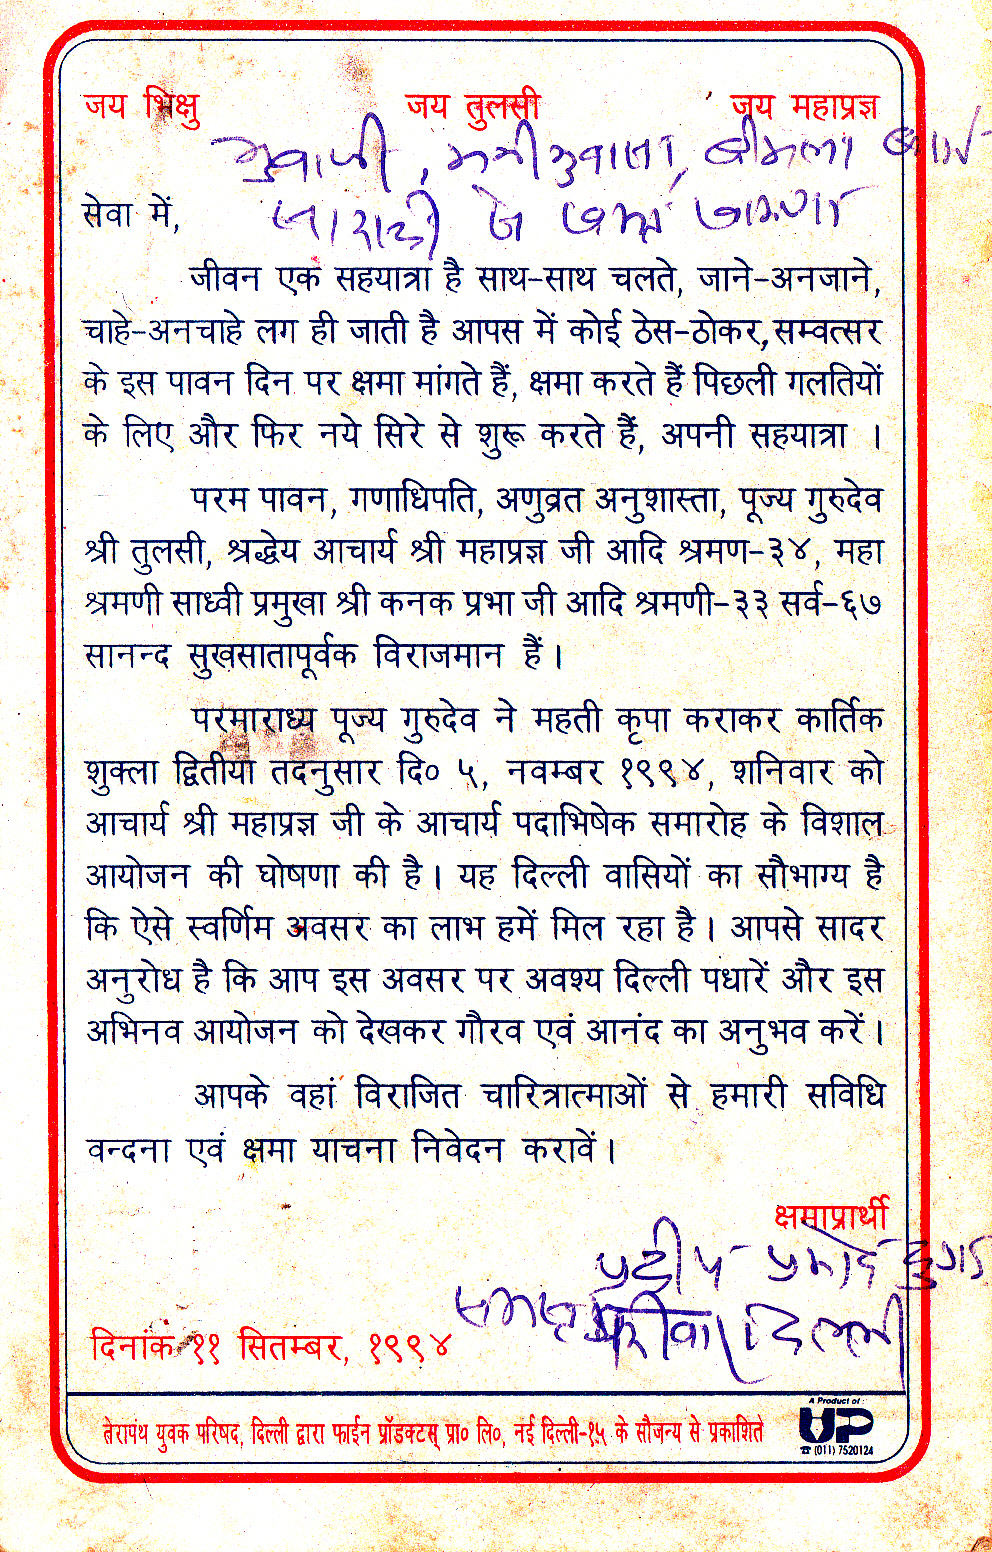 जय भिक्षु जय तुलसी जय महाप्रज्ञ
सेवा में,
जीवन एक सहयात्रा है साथ-साथ चलते, जाने-अनजाने,
चाहे-अनचाहे लग ही जाती है आपस में कोई ठेस-ठोकर, सम्वत्सर
के इस पावन दिन पर क्षमा मांगते हैं, क्षमा करते हैं पिछली गलतियों
के लिए और फिर नये सिरे से शुरू करते हैं, अपनी सहयात्रा ।
परम पावन, गणाधिपति, अणुव्रत अनुशास्ता, पूज्य गुरुदेव
श्री तुलसी, श्रद्धेय आचार्य श्री महाप्रज्ञ जी आदि श्रमण-३४, महा
श्रमणी साध्वी प्रमुखा श्री कनक प्रभा जी आदि श्रमणी-३३ सर्व-६७
सानन्द सुखसातापूर्वक विराजमान हैं।
परमाराध्य पूज्य गुरुदेव ने महती कृपा कराकर कार्तिक
शुक्ला द्वितीया तदनुसार दि० ५, नवम्बर १९९४, शनिवार को
आचार्य श्री महाप्रज्ञ जी के आचार्य पदाभिषेक समारोह के विशाल
आयोजन की घोषणा की है। यह दिल्ली वासियों का सौभाग्य है
कि ऐसे स्वर्णिम अवसर का लाभ हमें मिल रहा है। आपसे सादर
अनुरोध है कि आप इस अवसर पर अवश्य दिल्ली पधारें और इस
अभिनव आयोजन को देखकर गौरव एवं आनंद का अनुभव करें।
आपके वहां विराजित चारित्रात्माओं से हमारी सविधि
वन्दना एवं क्षमा याचना निवेदन करावें।
क्षमाप्रार्थी
प्रदीप प्रमोद दुगड़
समस्त परीवार दिल्ली
दिनांक ११ सितम्बर, १९९४
तेरापंथ युवक परिषद, दिल्ली द्वारा फाईन प्रॉडक्टस् प्रा० लि०, नई दिल्ली-१५ के सौजन्य से प्रकाशित
A Product of :
UP
☎ (011) 7520124